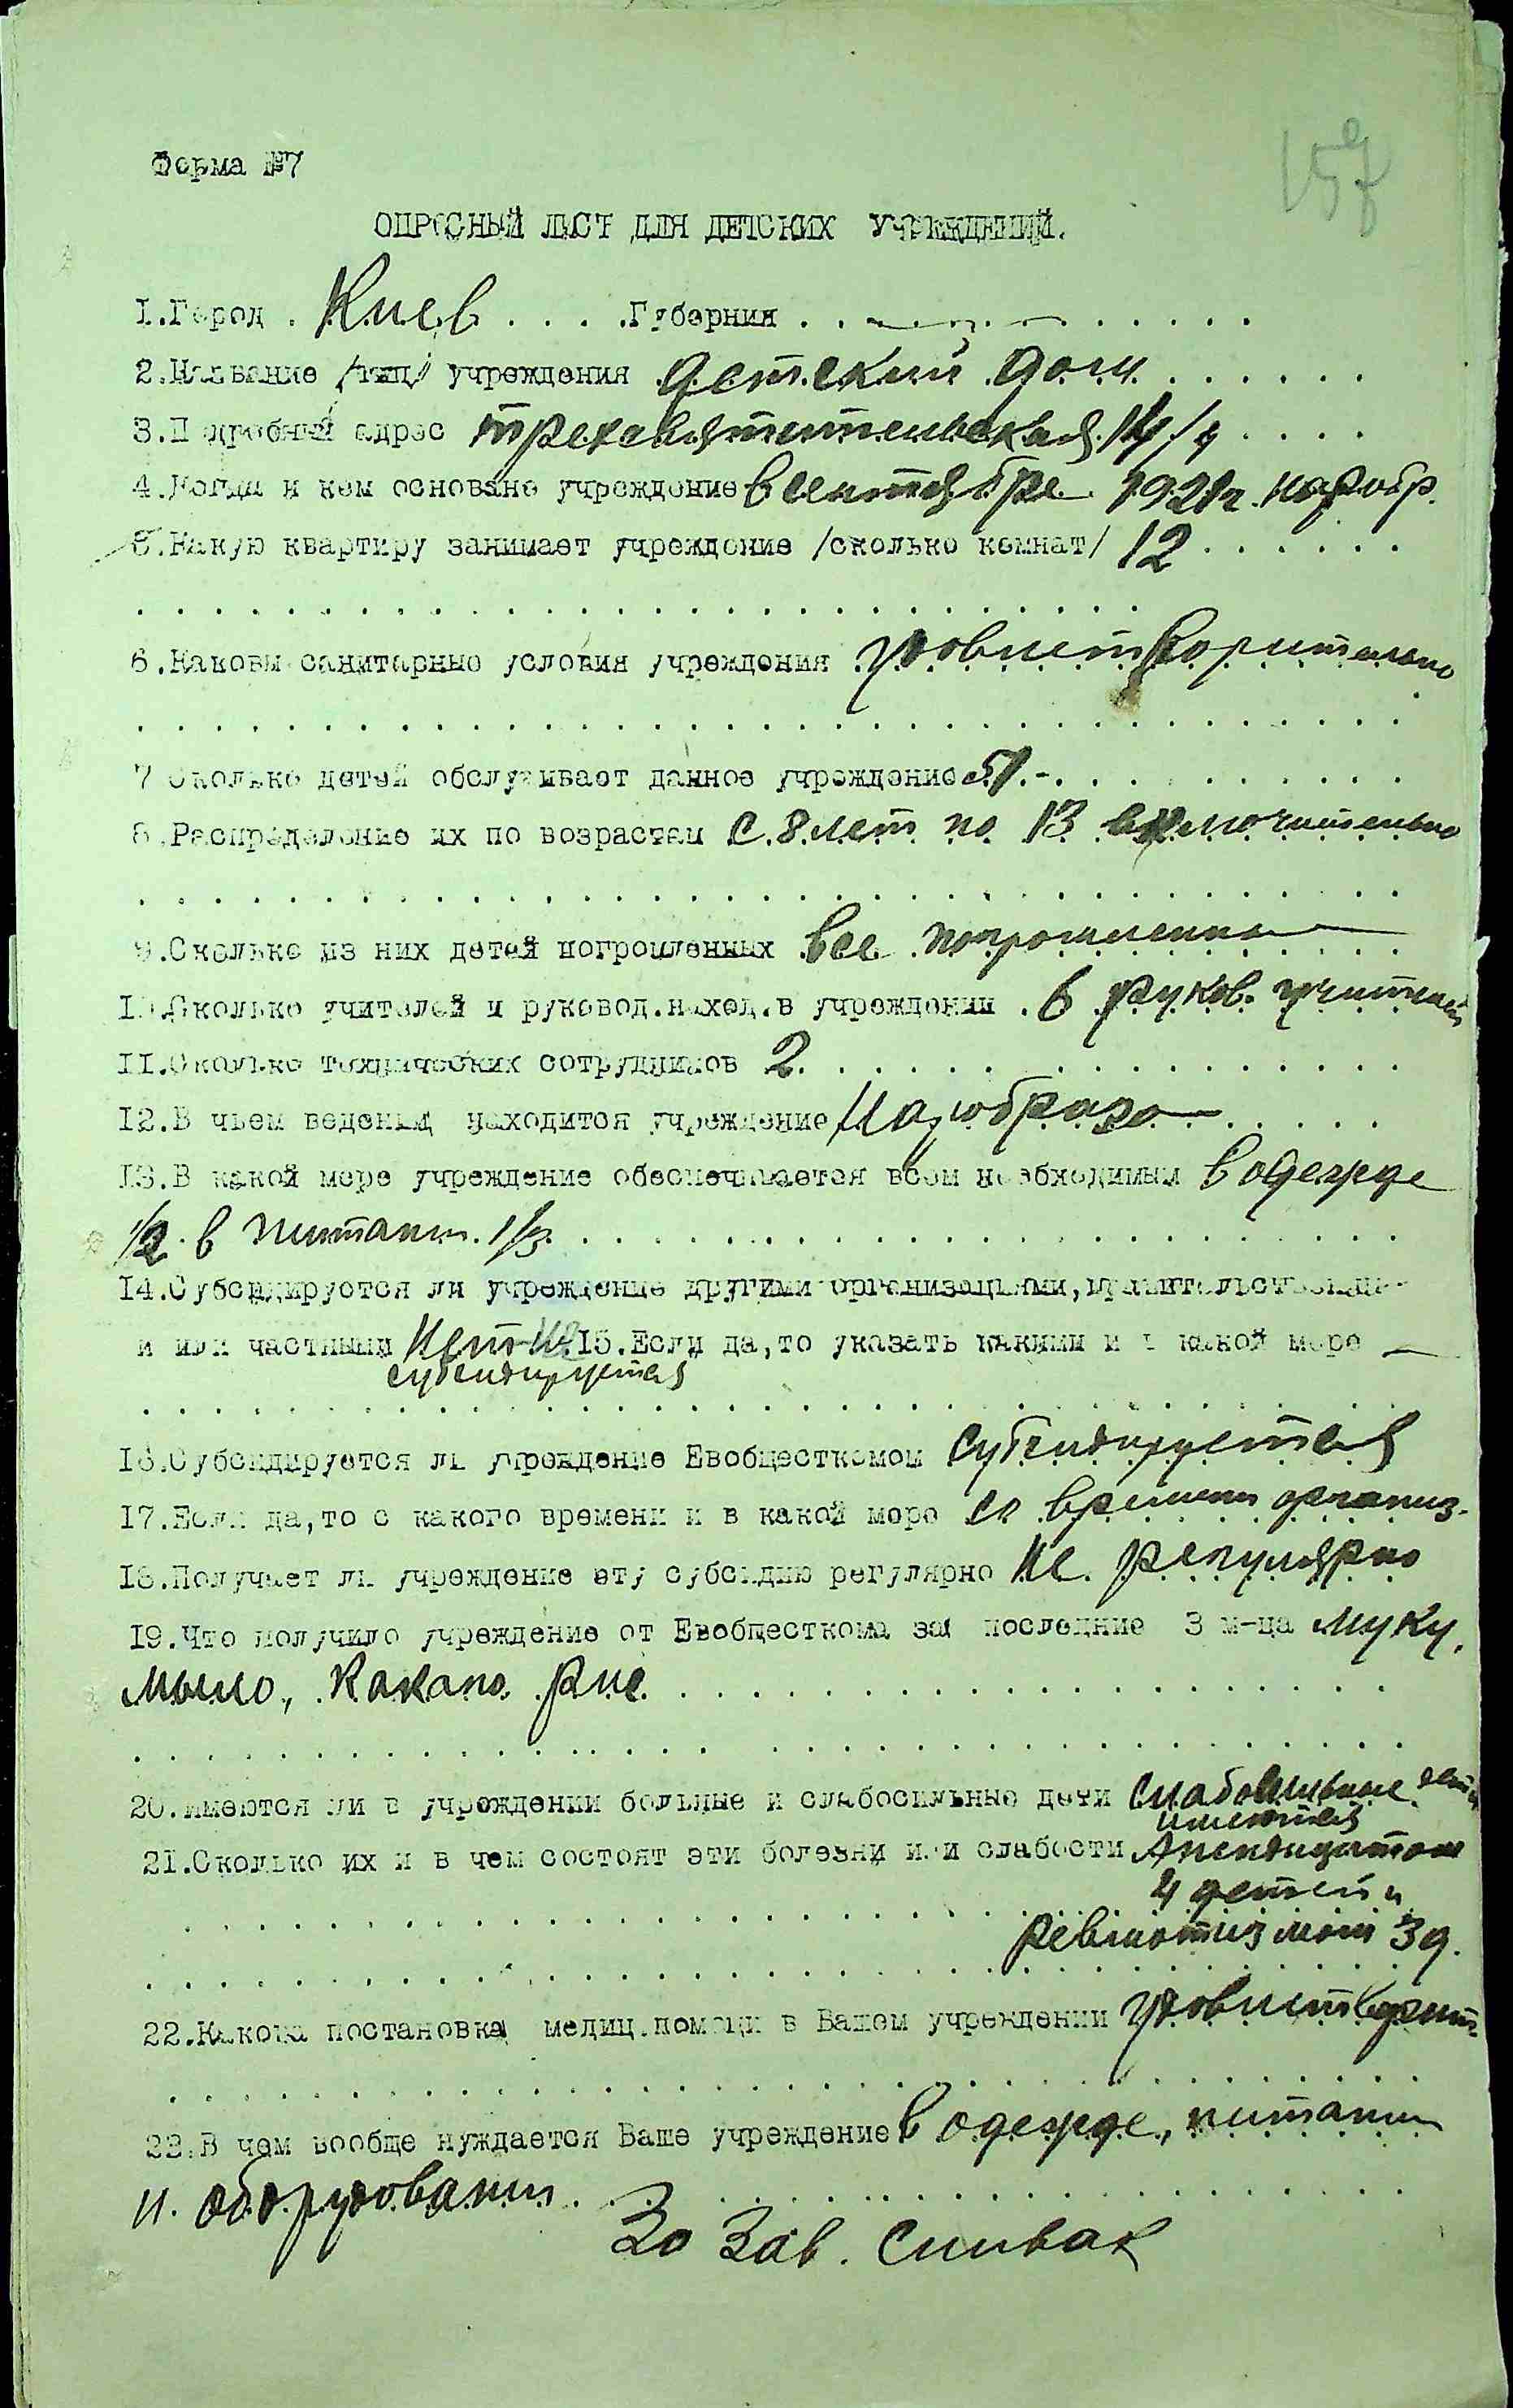 157
Форма №7
ОПРОСНЫЙ ЛИСТ ДЛЯ ДЕТСКИХ УЧРЕЖДЕНИЙ.
1.Город . Киев . . . .Губерния . . . . . . . . . .
2.Название /тип/ учреждения детский дом . . . . . .
3.Подробный адрес трехсвятительская 14/9 . . . .
4.Когда и кем основано учреждение в сентябре 1921г. наробр.
5.Какую квартиру занимает учреждение /сколько комнат/ 12 . . . . . .
6.Каковы санитарные условия учреждения удовлетворительно
7 Сколько детей обслуживает данное учреждение 51.- . . . . . . . . . .
8.Распределение их по возрастам с 8 лет по 13 включительно
9.Сколько из них детей погромленных все погромленные
10.Сколько учителей и руковод.наход.в учреждении . 6 руков. учителей
11.Сколько технических сотрудников 2. . . . . . . . . . . . . . . .
12.В чьем ведении находится учреждение Наробраза . . . . .
13.В какой мере учреждение обеспечивается всем необходимым в одежде
1/2 в питании 1/3. . . . . . . . . . . . . . . . . . . . . . .
14.Субсидируется ли учреждение другими организациями,правительственны-
и или частными Нет не 15.Если да,то указать какими и в какой мере —
субсидируется
16.Субсидируется ли учреждение Евобщесткомом субсидируется
17.Если да,то с какого времени и в какой море со времени организ.
18.Получает ли учреждение эту субсидию регулярно не регулярно
19.Что получило учреждение от Евобщесткома за последние 3 м-ца муку,
мыло, какао рис . . . . . . . . . . . . . . . . . . . .
20.Имеются ли в учреждении больные и слабосильные дети слабосильные дети
имеются
21.Сколько их и в чем состоят эти болезни или слабости Апендицитом
4 детей и
ревматизмом 3 д.
22.Какова постановка медиц.помощи в Вашем учреждении удовлетворит.
23.В чем вообще нуждается Ваше учреждение в одежде, питании
и оборудовании . . . . . . . . . . . . . . . . . . . .
За Зав. Спивак